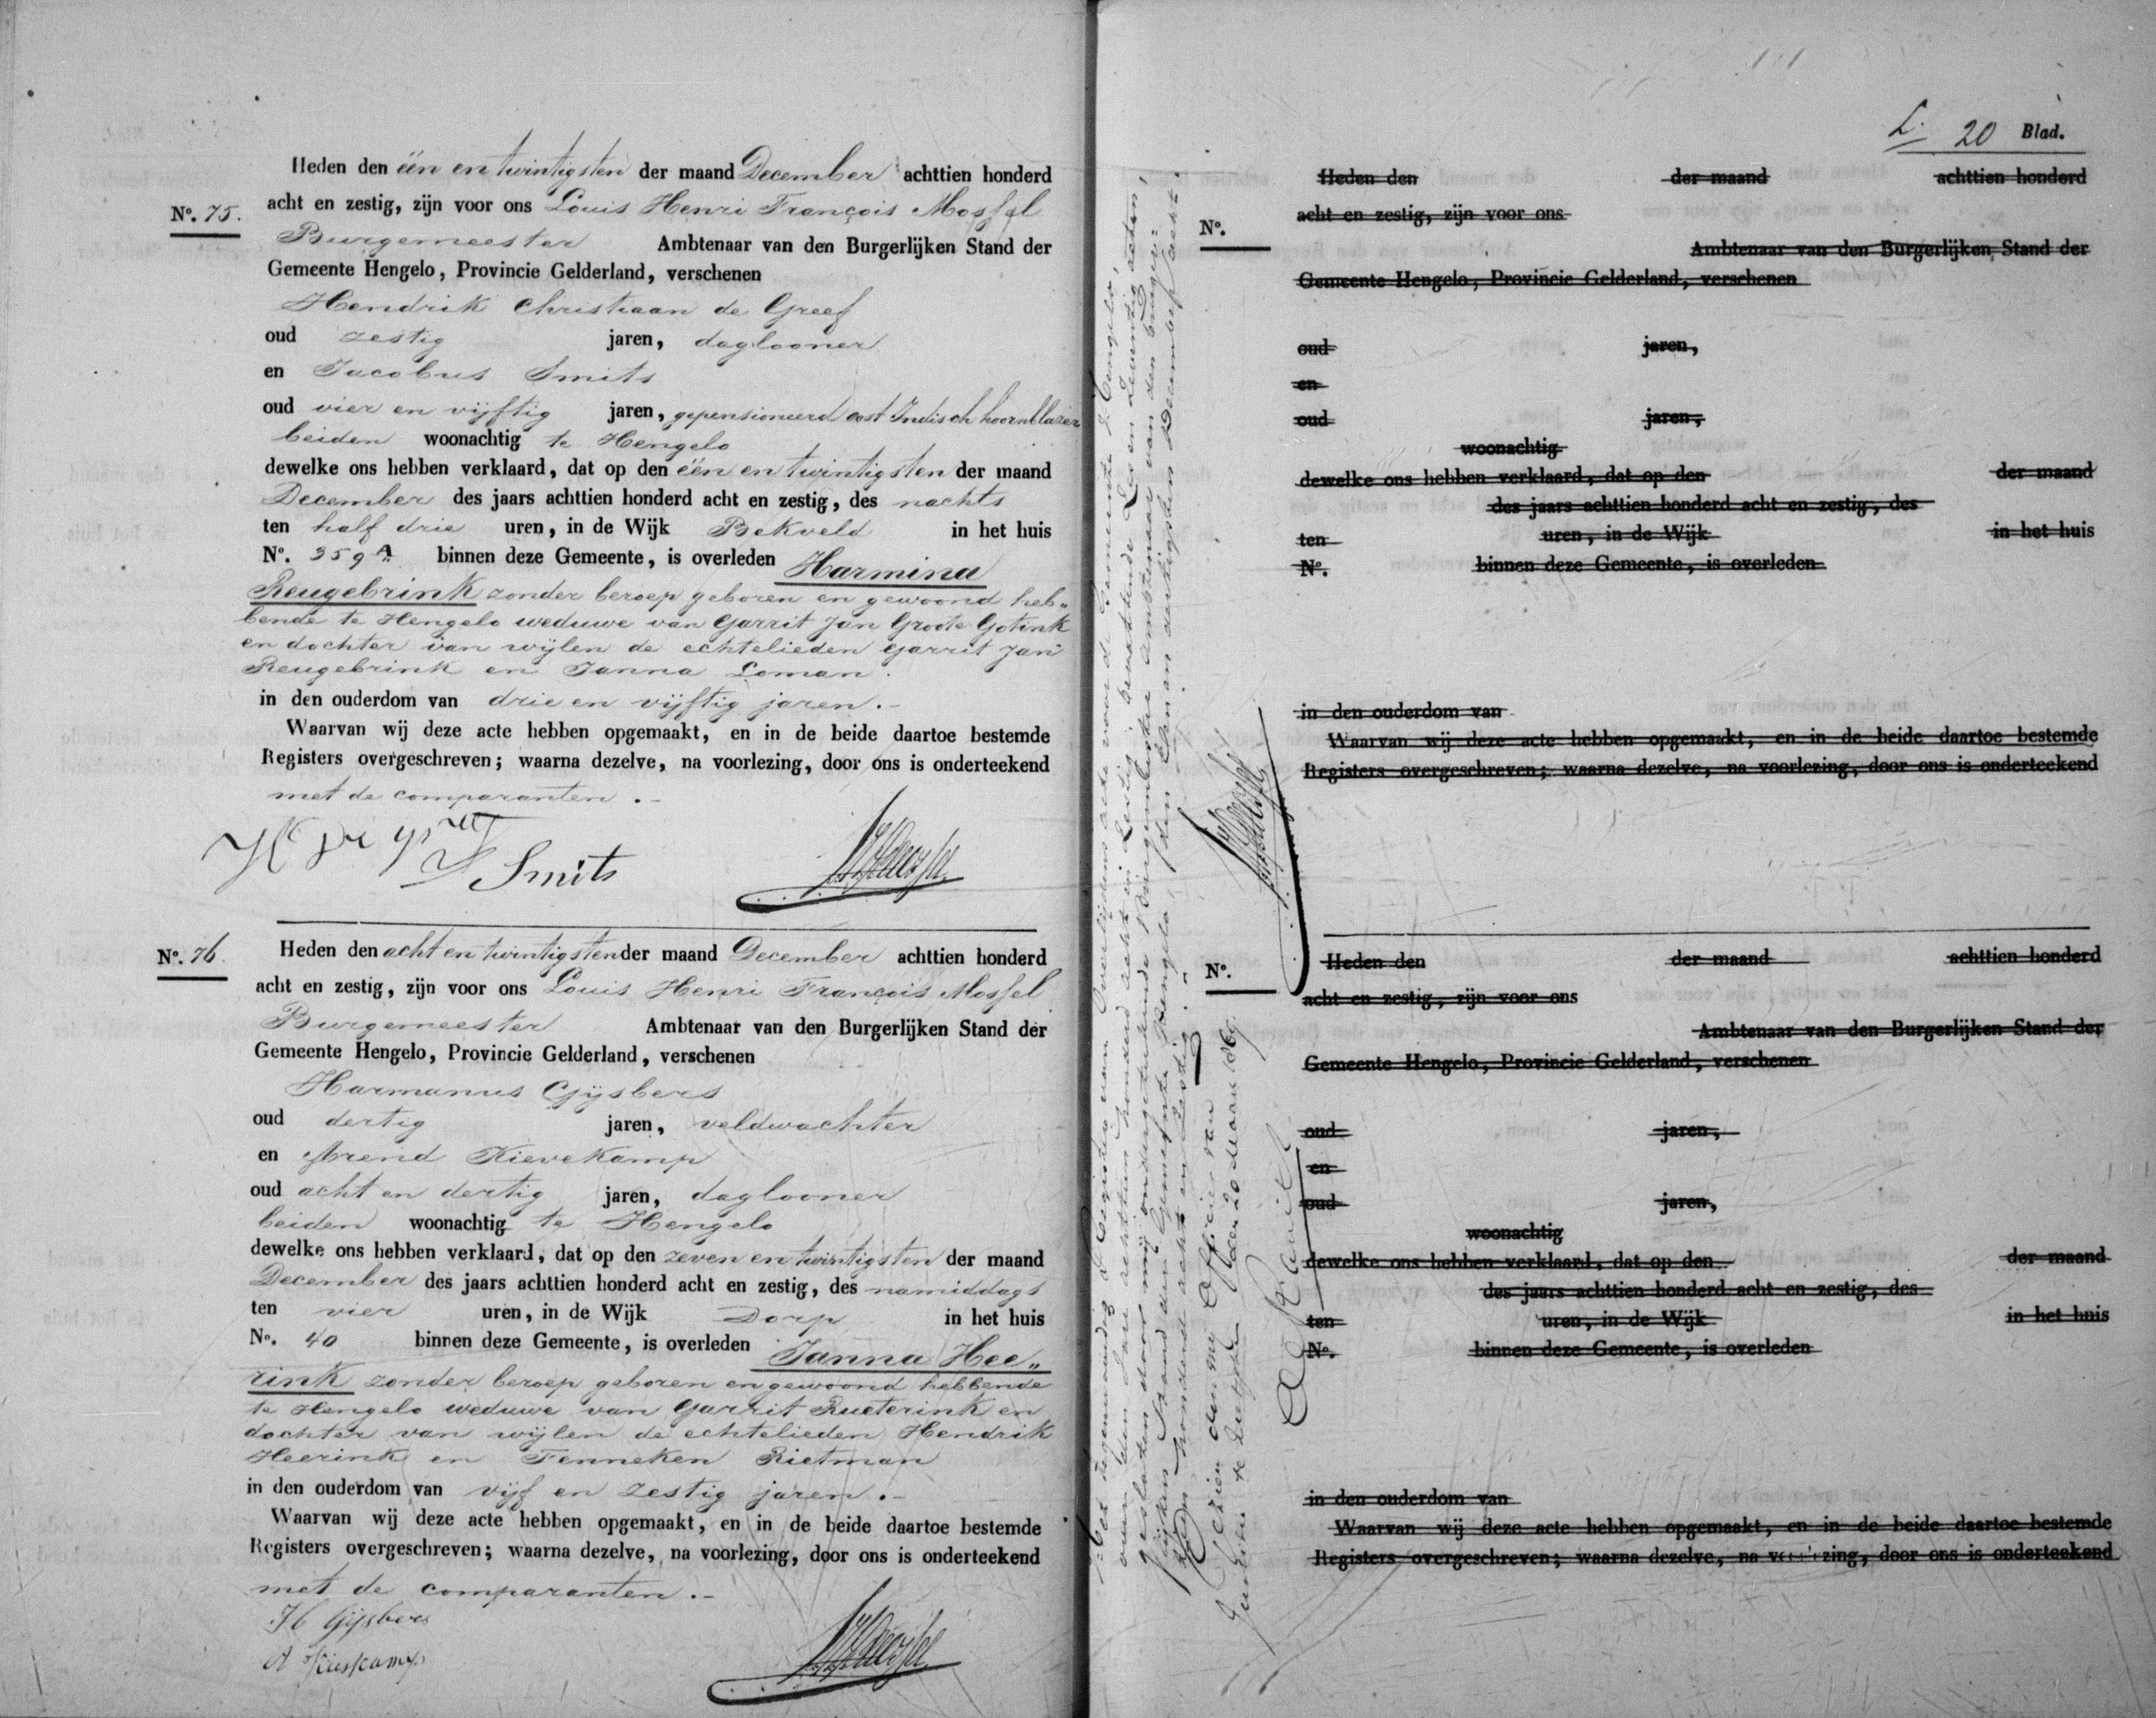 Heden den één en twintigsten der maand December achttien honderd
No. 75. acht en zestig, zijn voor ons Louis Henri François Mossel
Burgemeester Ambtenaar van den Burgerlijken Stand der
Gemeente Hengelo, Provincie Gelderland, verschenen
Hendrik Christiaan de Greef
oud zestig jaren, daglooner
en Jacobus Smits
oud vier en vijftig jaren, gepensioneerd oost Indisch hoornblazer
beiden woonachtig te Hengelo
dewelke ons hebben verklaard, dat op den één en twintigsten der maand
December des jaars achttien honderd acht en zestig, des nachts
ten half drie uren, in de Wijk Bekveld in het huis
No. 359 A binnen deze Gemeente, is overleden Harmina
Reugebrink zonder beroep geboren en gewoond heb„
bende te Hengelo weduwe van Garrit Jan Groote Gotink
en dochter van wijlen de echtelieden Garrit Jan
Reugebrink en Janna Loman.
in den ouderdom van drie en vijftig jaren.-
Waarvan wij deze acte hebben opgemaakt, en in de beide daartoe bestemde
Registers overgeschreven; waarna dezelve, na voorlezing, door ons is onderteekend
met de comparanten.-
Smits
No. 76. Heden den acht en twintigsten der maand December achttien honderd
acht en zestig, zijn voor ons Louis Henri François Mossel
Burgemeester Ambtenaar van den Burgerlijken Stand der
Gemeente Hengelo, Provincie Gelderland, verschenen
Harmanus Gijsbers
oud dertig jaren, veldwachter
en Arend Kievekamp
oud acht en dertig jaren, daglooner
beiden woonachtig te Hengelo
dewelke ons hebben verklaard, dat op den zeven en twintigsten der maand
December des jaars achttien honderd acht en zestig, des namiddags
ten vier uren, in de Wijk Dorp in het huis
No. 40 binnen deze Gemeente, is overleden Janna Hee„
rink zonder beroep geboren en gewoond hebbende
te Hengelo weduwe van Garrit Rueterink en
dochter van wijlen de echtelieden Hendrik
Heerink en Fenneken Rietman
in den ouderdom van vijf en zestig jaren.-
Waarvan wij deze acte hebben opgemaakt, en in de beide daartoe bestemde
Registers overgeschreven; waarna dezelve, na voorlezing, door ons is onderteekend
met de comparanten.-
H Gijsbers
L. 20 Blad.
Heden den der maand achttien honderd
No. acht en zestig, zijn voor ons
Ambtenaar van den Burgerlijken Stand der
Gemeente Hengelo, Provincie Gelderland, verschenen
oud jaren,
en
oud jaren,
woonachtig
dewelke ons hebben verklaard, dat op den der maand
des jaars achttien honderd acht en zestig, des
ten uren, in de Wijk in het huis
No. binnen deze Gemeente, is overleden
in den ouderdom van
Waarvan wij deze acte hebben opgemaakt, en in de beide daartoe bestemde
Registers overgeschreven; waarna dezelve, na voorlezing, door ons is onderteekend
No. Heden den der maand achttien honderd
acht en zestig, zijn voor ons
Ambtenaar van den Burgerlijken Stand der
Gemeente Hengelo, Provincie Gelderland, verschenen
oud jaren,
en
oud jaren,
woonachtig
dewelke ons hebben verklaard, dat op den der maand
des jaars achttien honderd acht en zestig, des
ten uren, in de Wijk in het huis
No. binnen deze Gemeente, is overleden
in den ouderdom van
Waarvan wij deze acte hebben opgemaakt, en in de beide daartoe bestemde
Registers overgeschreven; waarna dezelve, na voorlezing, door ons is onderteekend